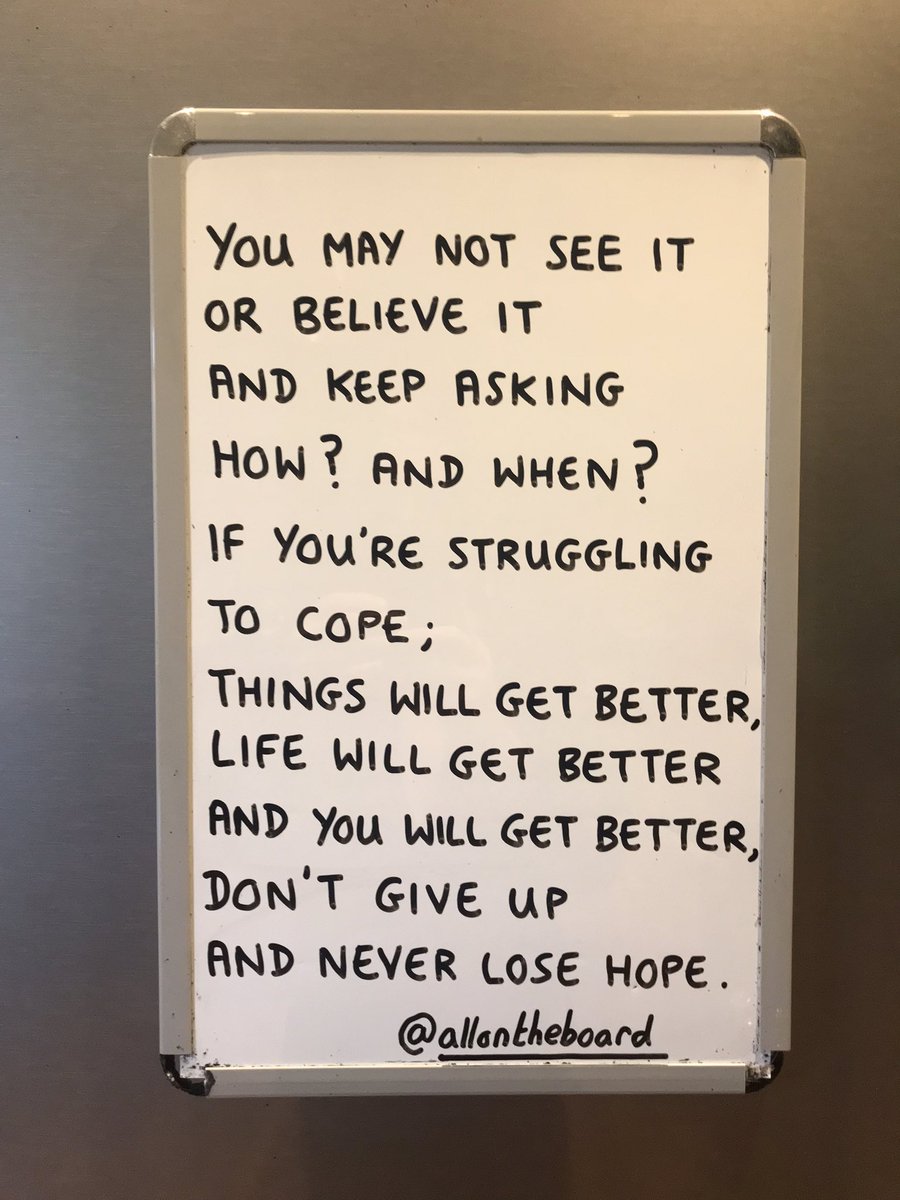 YOU MAY NOT SEE IT
OR BELIEVE IT
AND KEEP ASKING
HOW? AND WHEN?
IF YOU'RE STRUGGLING
TO COPE;
THINGS WILL GET BETTER,
LIFE WILL GET BETTER
AND YOU WILL GET BETTER,
DON'T GIVE UP
AND NEVER LOSE HOPE.
@allontheboard